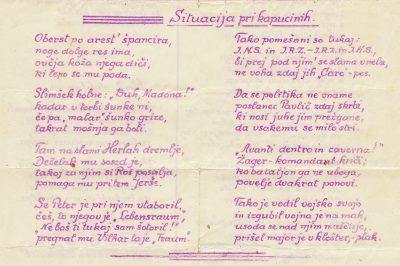 Situacija pri kapucinih.
Oberst po arest' španc­ira,
noge dolge res ima,
ovčja koža njega diči,
ki lepo se mu poda.
Slimšek kolne: "Buh, Madona!"
kadar v torbi šunke ni,
če pa "malar" šunko grize,
takrat mošnja ga boli.
Tam na slami Herlah dremlje,
Deželak mu sosed je,
takoj za njim si Roš posiplja,
pomaga mu pri tem Jerše.
Se Peter je pri njem utaboril,
češ, to njegov je "Lebensraum",
"Ne boš ti tukaj sam šotoril!"
pregnal mu Volkar ta je "Traum"
Tako pomešani so tukaj:
J.N.S. in J.R.Z. - J.R.Z. in J.N.S.,
bi prej pod njim' se slama vnela,
ne voha zdaj jih "Caro"-pes.
Da se politika ne vname
poslanec Pavlič zdaj skrbi,
ki nosi juhe jim prežgane,
da vsakemu se milo stri.
"Avanti dentro in caverna!"
Žager-komandant kriči;
ko bataljon ga ne uboga,
povelje dvakrat ponovi.
Tako je vodil vojsko svojo
in izgubil vojno je na mah,
usoda se nad njim maščuje,
prišel major je v klošter,-plah.